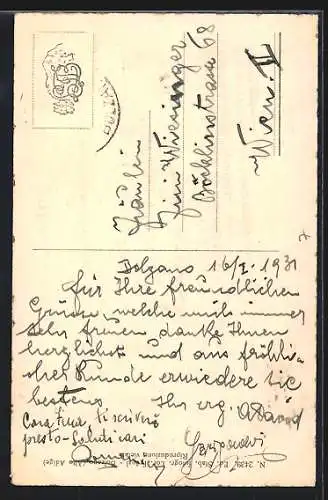 Fräulein
Wiesinger
Böcklinstrasse 68
Wien II
BOLZANO
Bolzano 16/I. 1931
für Ihre freundlichen
Grüsse, welche mich immer
sehr freuen danke Ihnen
herzlichst und aus fröhli-
cher Runde erwiedere sie
bestens Ihr erg. David
Cara ti scriverò
presto - Saluti cari
N. 2439 Ed. Stab.
Riproduzione vietata